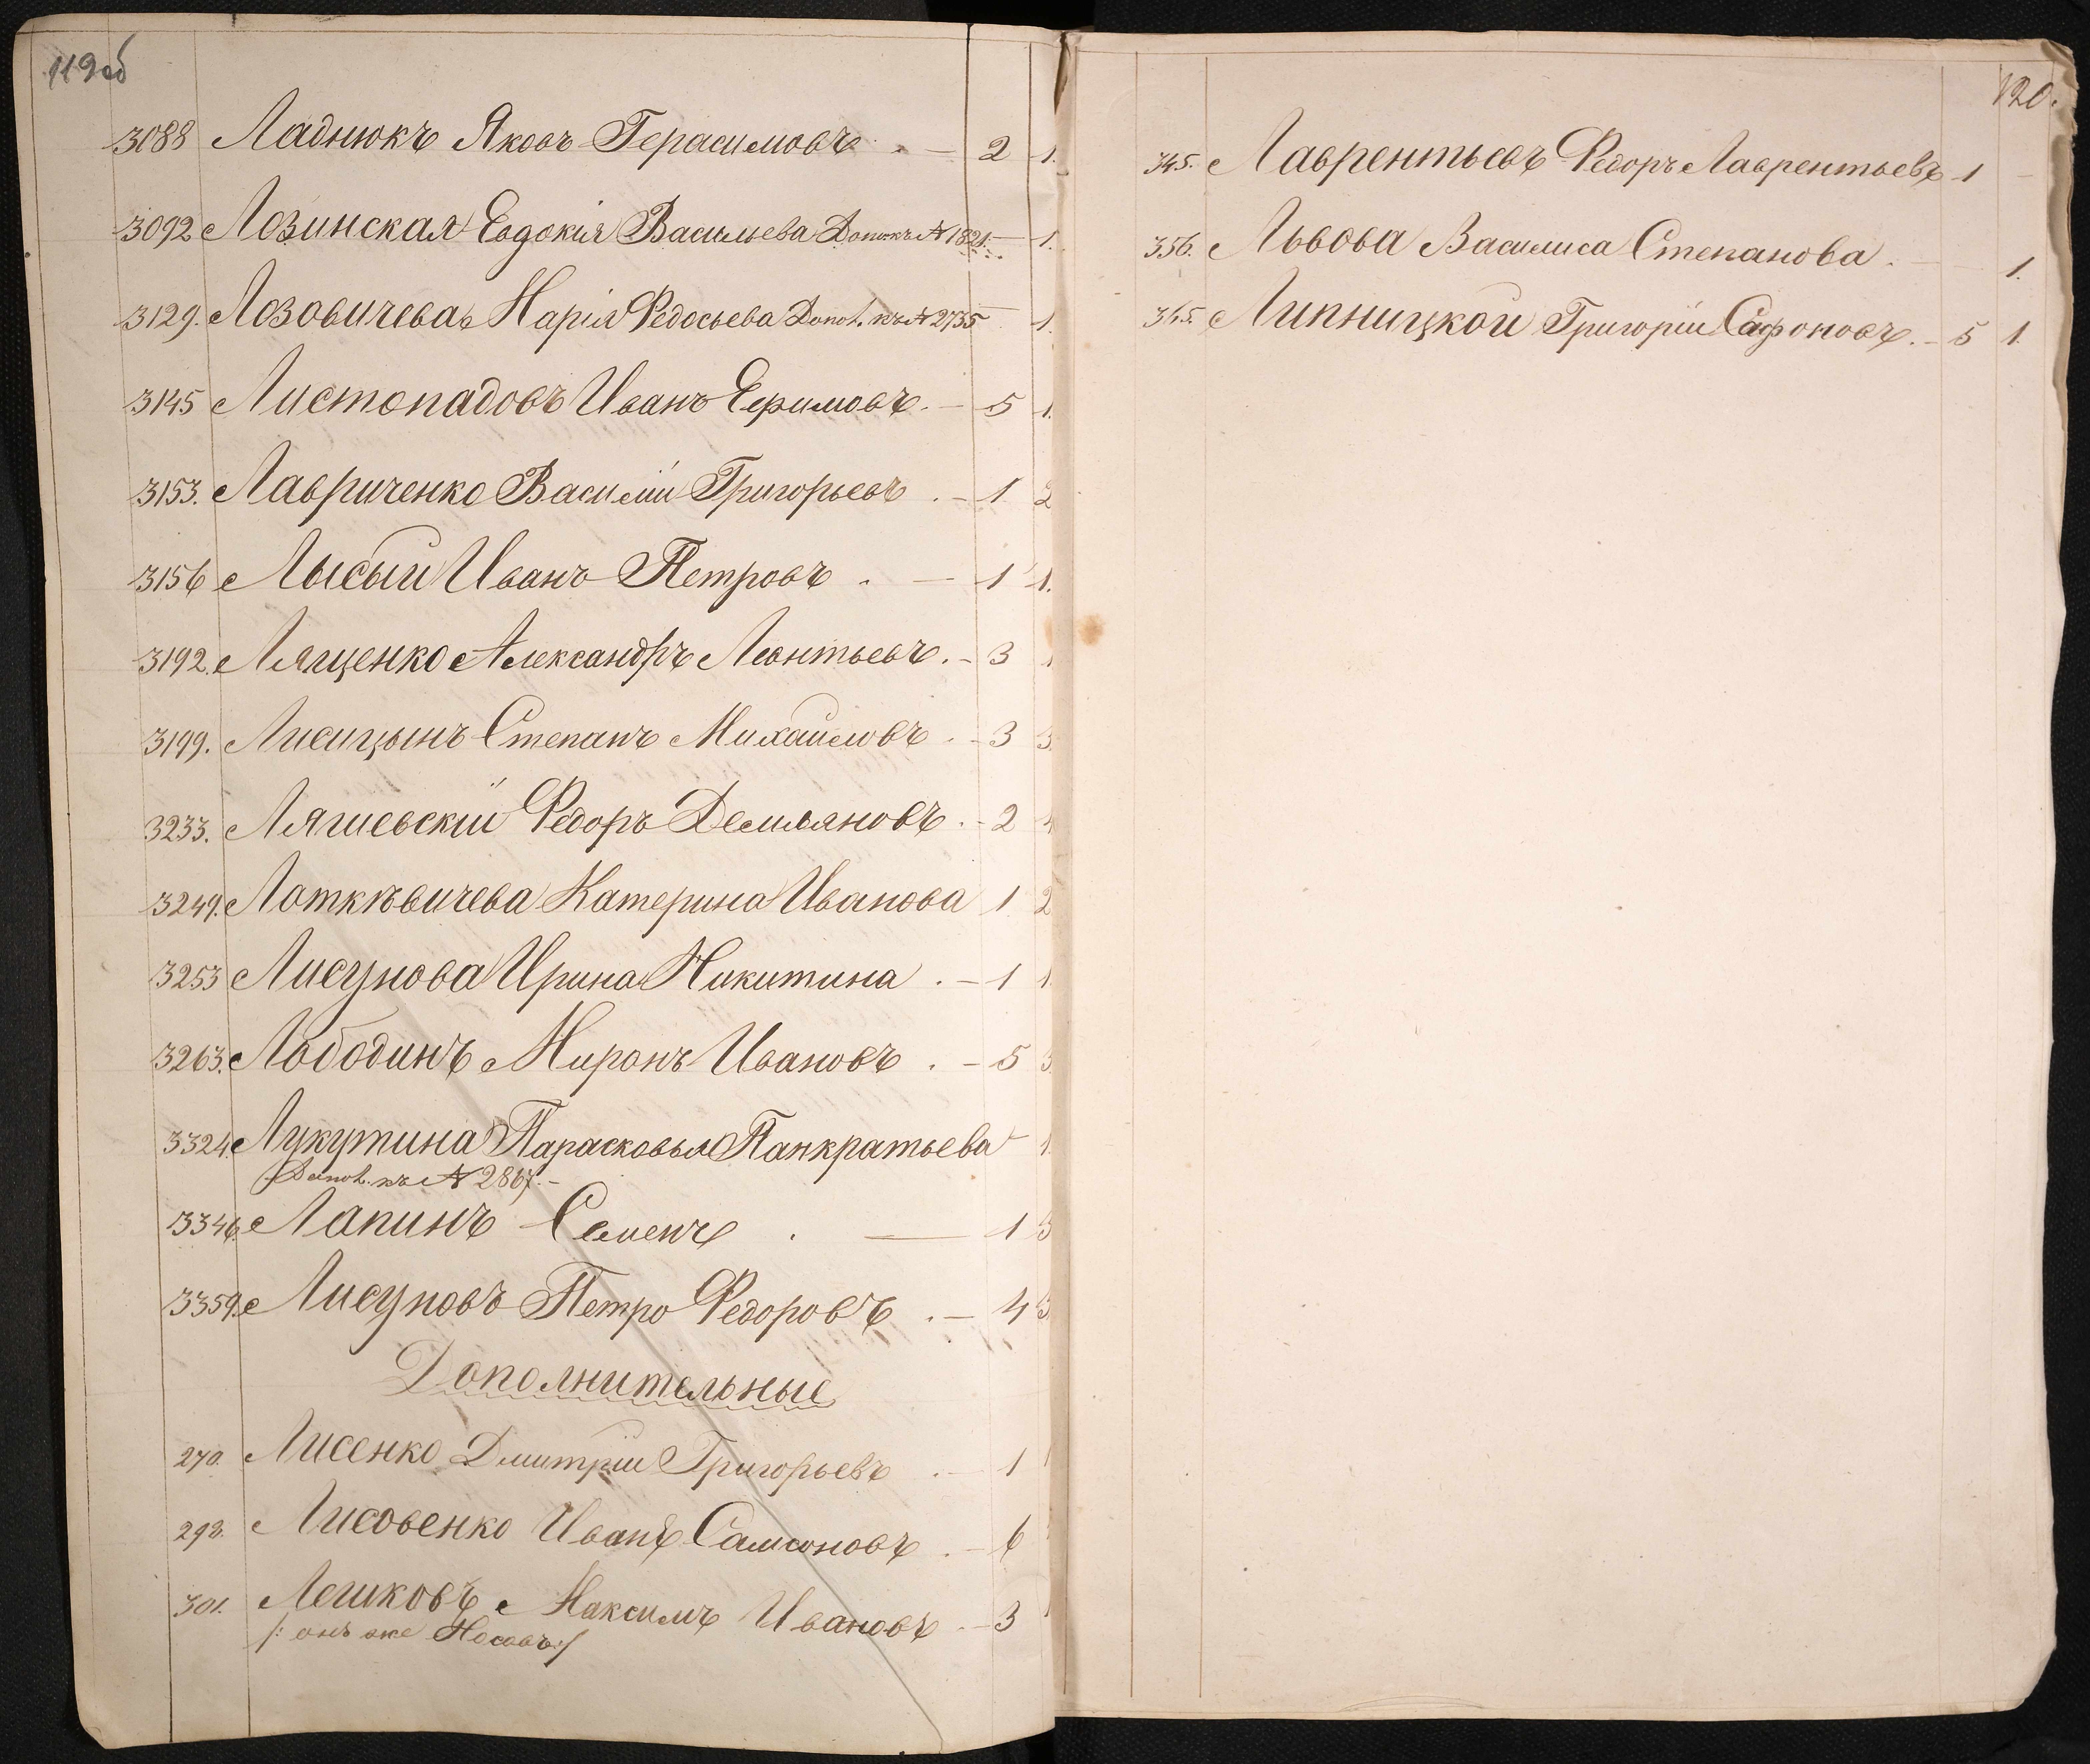 119об
3088 Ладнюкъ Яковъ Герасимовъ . — 2 1.
3092 Лозинская Евдокія Васильева Допол. къ № 1821. — 1.
3129. Лозовичева Марія Ѳедосьева Допол. къ № 2735 — 1.
3145 Листопадовъ Иванъ Ефимовъ. — 5 1.
3153. Лавриченко Василій Григорьевъ . — 1 2
3156 Лысый Иванъ Петровъ . — 1 1.
3192. Лященко Александръ Леонтьевъ. — 3 1
3199. Лисицынъ Степанъ Михайловъ . — 3 3.
3233. Лягиевскій Ѳедоръ Демьяновъ . — 2 4
3249. Латкѣвичева Катерина Иванова 1 2
3253 Лисунова Ирина Никитина . — 1 1.
3263. Лободинъ Миронъ Ивановъ . — 5 3.
3324. Лукутина Парасковья Панкратьева — 1
Допол. къ № 2867. —
3346. Лапинъ Семенъ . — 1 3
3359. Лисуновъ Петро Ѳедоровъ . — 4 3
Дополнительные
270. Лисенко Дмитрій Григорьевъ . — 1 1
298. Лисовенко Иванъ Самсоновъ . — 6
301. Лешковъ Максимъ Ивановъ . — 3 1
/: онъ же Носовъ :/
120.
345. Лаврентьевъ Ѳедоръ Лаврентьевъ 1 —
356. Львова Василиса Степанова . — 1.
365. Липницкой Григорій Сафоновъ. — 5 1.